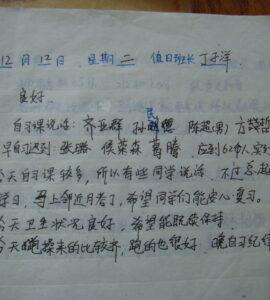 12月12日 星期二 值日班长 丁子洋
良好
自习课说话：齐亚群 孙民德 陈超(男) 方梦哲
早自迟到：张璐 侯荣森 葛腾 应到62人 实
今天自习课较多，所以有些同学说话，不过总
学习，马上邻近月考了，希望同学们能安心复习。
今天卫生状况良好，希望能继续保持
今天跑操来的比较齐，跑的也很好，晚自习纪